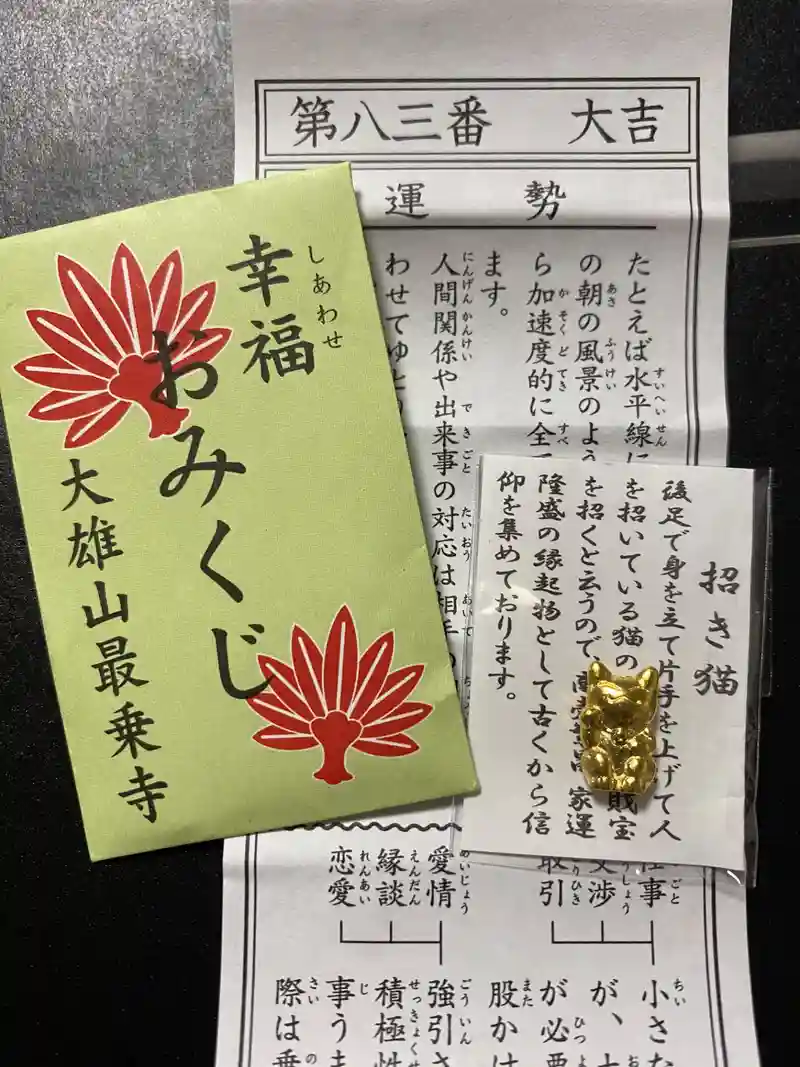 第八三番 大吉
運勢
たとえば水平線に
の朝の風景のよう
ら加速度的に全て
ます。
人間関係や出来事の対応は相手の
わせてゆと
幸福
しあわせ
おみくじ
大雄山最乗寺
招き猫
後足で身を立て片手を上げて人
を招いている猫の
財宝
を招くと云うので、商売
家運
隆盛の縁起物として古くから信
仰を集めております。
仕事
交渉
取引
小さな
が、
が必要
股かけ
愛情
縁談
恋愛
強引さ
積極性
事うま
際は乗